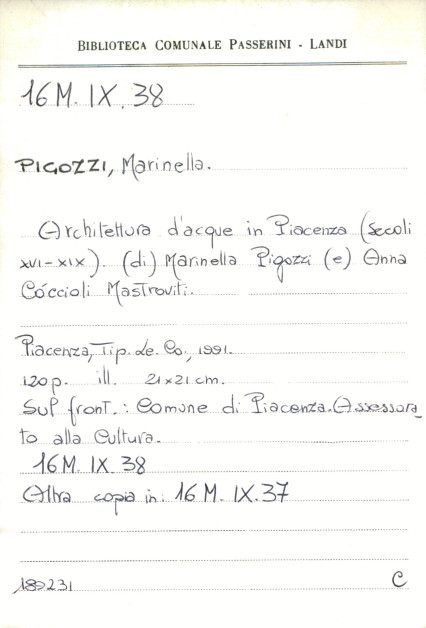 BIBLIOTECA COMUNALE PASSERINI - LANDI
16 M. IX. 38
PIGOZZI, Marinella.
Architettura d'acque in Piacenza (secoli
XVI-XIX). (di) Marinella Pigozzi (e) Anna
Cóccioli Mastroviti.
Piacenza, Tip. Le. Co., 1991.
120 p. ill. 21x21 cm.
Sul front.: Comune di Piacenza. Assessora_
to alla Cultura.
16 M. IX. 38
Altra copia in: 16 M. IX. 37
C